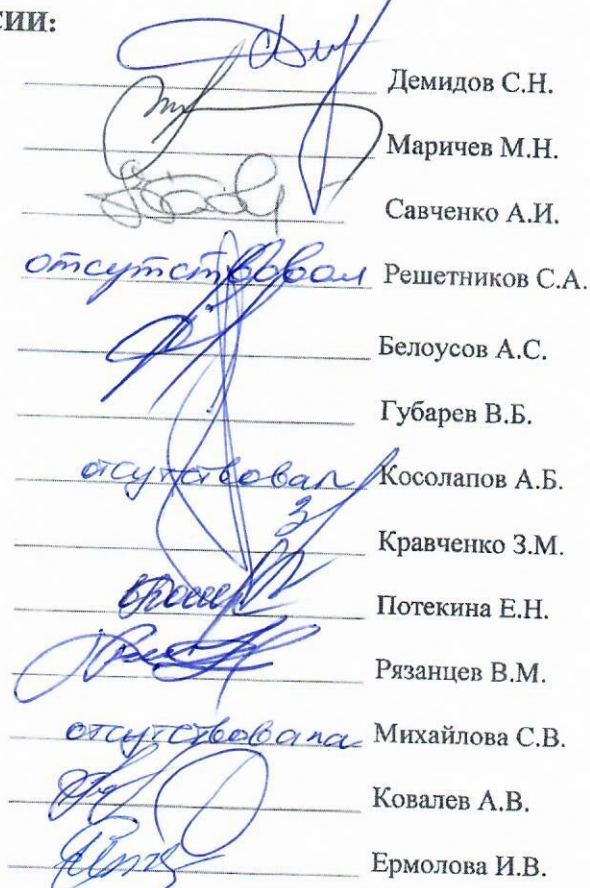 СИИ:
Демидов С.Н.
Маричев М.Н.
Савченко А.И.
отсутствовал Решетников С.А.
Белоусов А.С.
Губарев В.Б.
отсутствовал Косолапов А.Б.
Кравченко З.М.
Потекина Е.Н.
Рязанцев В.М.
отсутствовала Михайлова С.В.
Ковалев А.В.
Ермолова И.В.